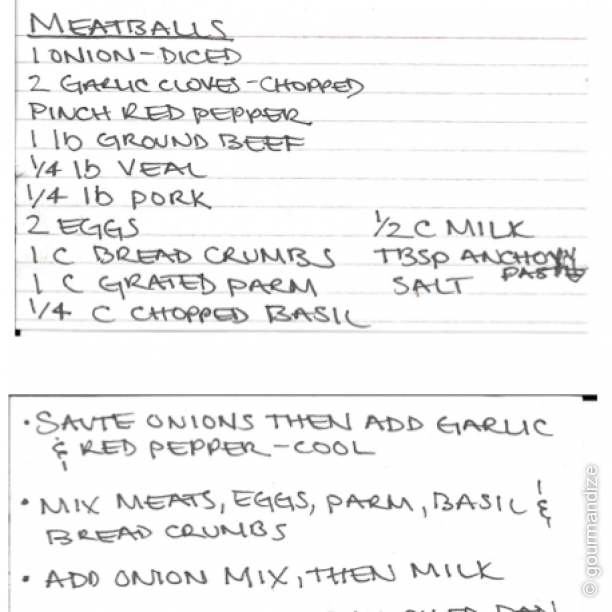 MEATBALLS
1 ONION-DICED
2 GARLIC CLOVES-CHOPPED
PINCH RED PEPPER
1 lb GROUND BEEF
1/4 lb VEAL
1/4 lb PORK
2 EGGS
1 C BREAD CRUMBS
1 C GRATED PARM
1/4 C CHOPPED BASIL
1/2 C MILK
TBSP ANCHOVY
PASTE
SALT
• SAUTE ONIONS THEN ADD GARLIC
& RED PEPPER-COOL
• MIX MEATS, EGGS, PARM, BASIL &
BREAD CRUMBS
• ADD ONION MIX, THEN MILK
© gourmandize